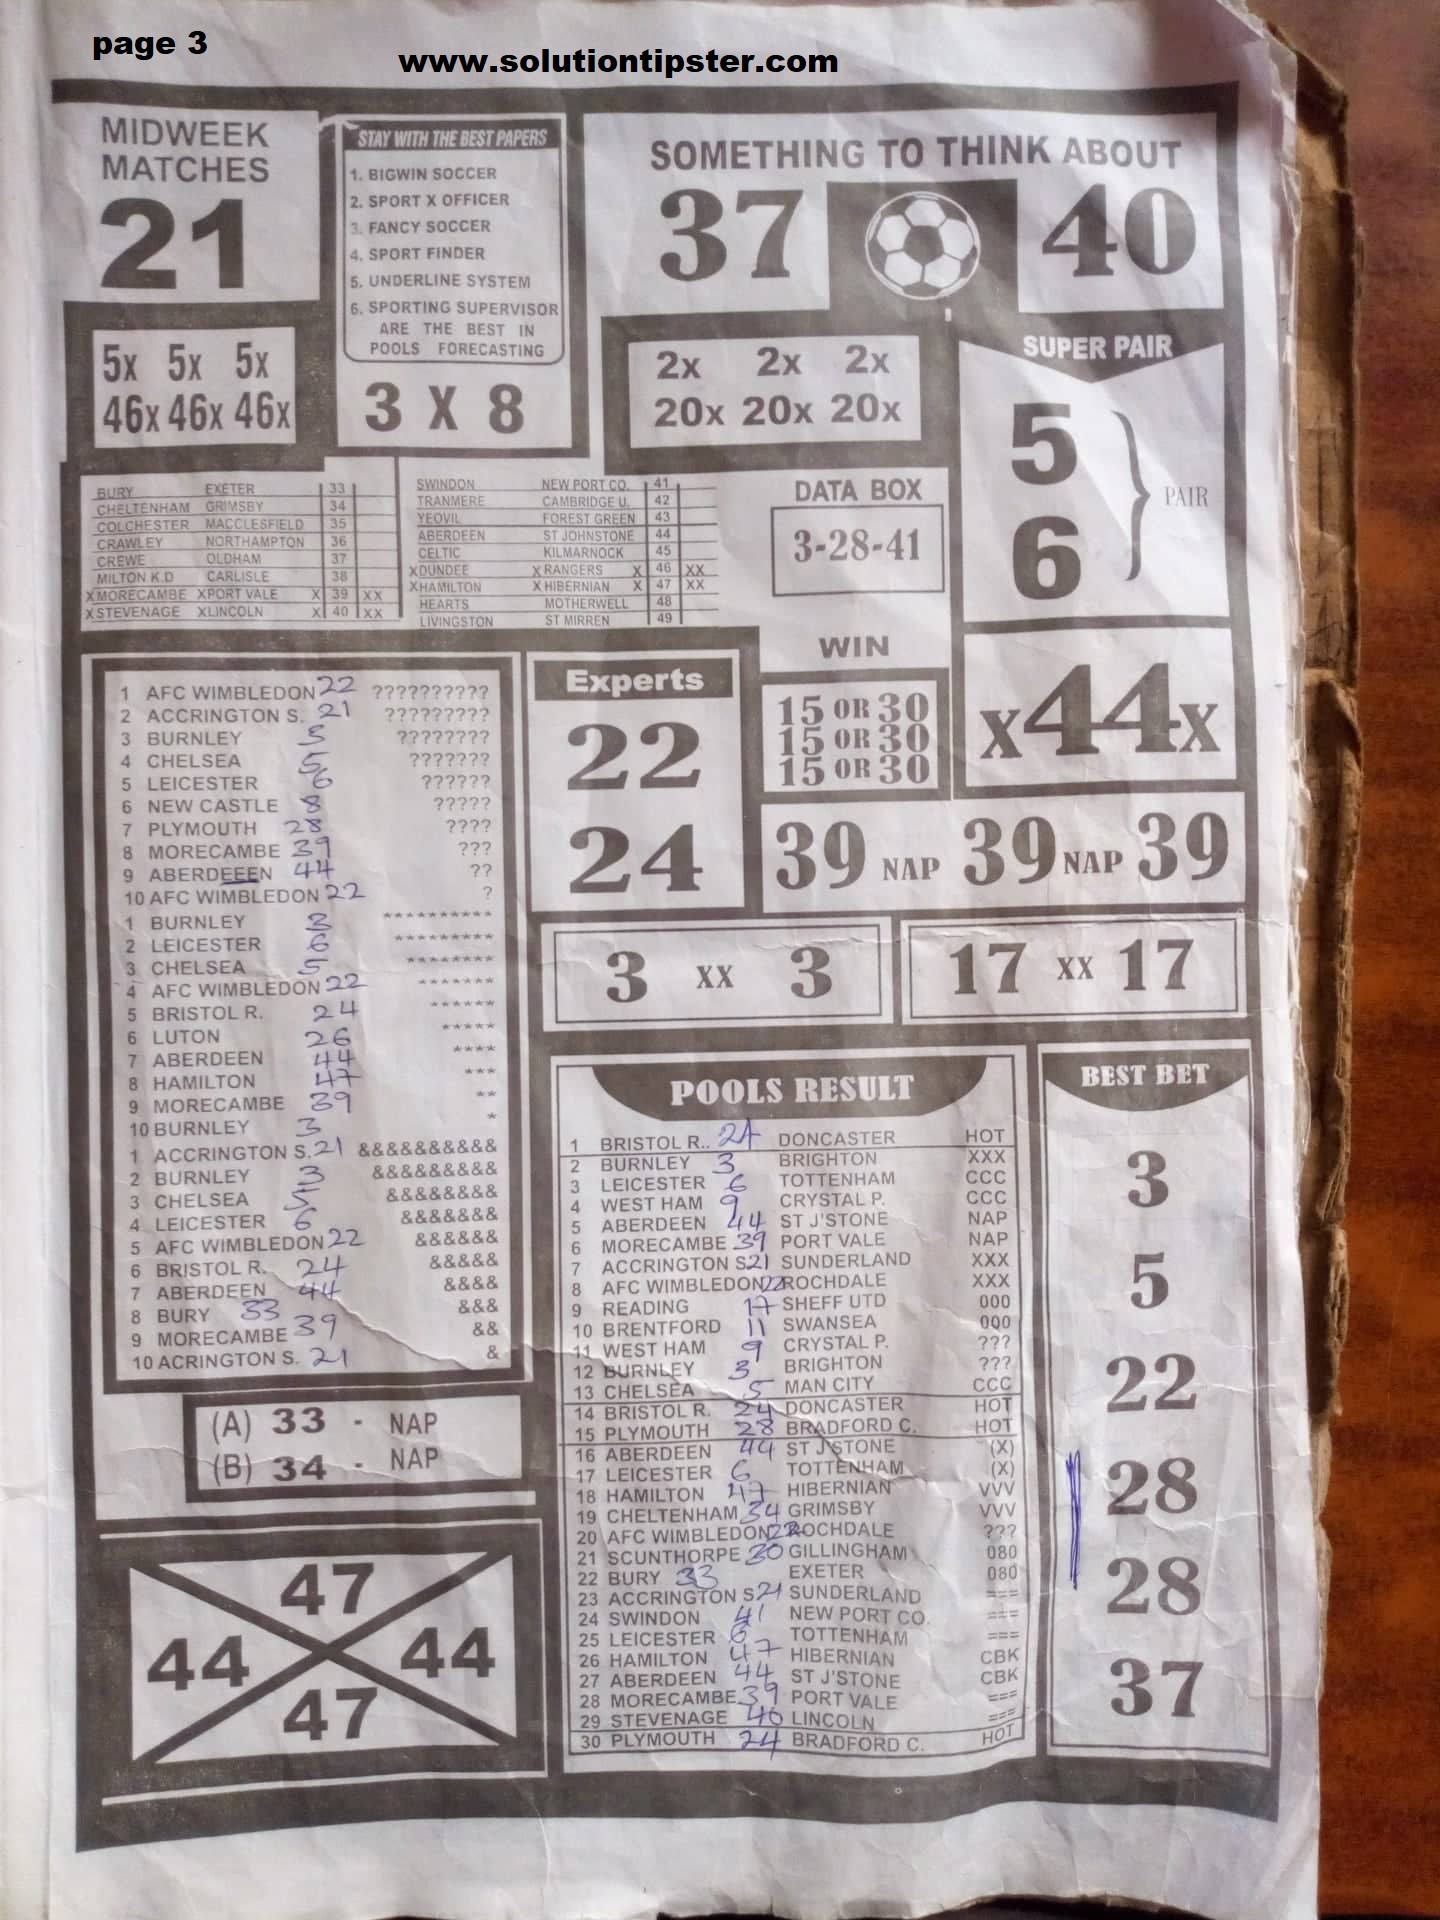 page 3
www.solutiontipster.com
MIDWEEK
MATCHES
21
STAY WITH THE BEST PAPERS
1. BIGWIN SOCCER
2. SPORT X OFFICER
3. FANCY SOCCER
4. SPORT FINDER
5. UNDERLINE SYSTEM
6. SPORTING SUPERVISOR
ARE THE BEST IN
POOLS FORECASTING
3 X 8
SOMETHING TO THINK ABOUT
37 40
5x 5x 5x
46x 46x 46x
2x 2x 2x
20x 20x 20x
SUPER PAIR
5
6
PAIR
BURY EXETER 33
CHELTENHAM GRIMSBY 34
COLCHESTER MACCLESFIELD 35
CRAWLEY NORTHAMPTON 36
CREWE OLDHAM 37
MILTON K.D CARLISLE 38
X MORECAMBE X PORT VALE X 39 XX
X STEVENAGE X LINCOLN X 40 XX
SWINDON NEW PORT CO. 41
TRANMERE CAMBRIDGE U. 42
YEOVIL FOREST GREEN 43
ABERDEEN ST JOHNSTONE 44
CELTIC KILMARNOCK 45
X DUNDEE X RANGERS X 46 XX
X HAMILTON X HIBERNIAN X 47 XX
HEARTS MOTHERWELL 48
LIVINGSTON ST MIRREN 49
DATA BOX
3-28-41
WIN
15 OR 30
15 OR 30
15 OR 30
X44X
1 AFC WIMBLEDON 22 ??????????
2 ACCRINGTON S. 21 ?????????
3 BURNLEY 5 ????????
4 CHELSEA 5 ???????
5 LEICESTER 6 ??????
6 NEW CASTLE 8 ?????
7 PLYMOUTH 28 ????
8 MORECAMBE 39 ???
9 ABERDEEEN 44 ??
10 AFC WIMBLEDON 22 ?
1 BURNLEY 3 **********
2 LEICESTER 6 *********
3 CHELSEA 5 ********
4 AFC WIMBLEDON 22 *******
5 BRISTOL R. 24 ******
6 LUTON 26 *****
7 ABERDEEN 44 ****
8 HAMILTON 47 ***
9 MORECAMBE 39 **
10 BURNLEY 3 *
1 ACCRINGTON S. 21 &&&&&&&&&&
2 BURNLEY 3 &&&&&&&&&
3 CHELSEA 5 &&&&&&&&
4 LEICESTER 6 &&&&&&&
5 AFC WIMBLEDON 22 &&&&&&
6 BRISTOL R. 24 &&&&&
7 ABERDEEN 44 &&&&
8 BURY 33 &&&
9 MORECAMBE 39 &&
10 ACRINGTON S. 21 &
Experts
22
24
39 NAP 39 NAP 39
3 XX 3
17 XX 17
(A) 33 - NAP
(B) 34 - NAP
47
44 44
47
POOLS RESULT
1 BRISTOL R.. 24 DONCASTER HOT
2 BURNLEY 3 BRIGHTON XXX
3 LEICESTER 6 TOTTENHAM CCC
4 WEST HAM 9 CRYSTAL P. CCC
5 ABERDEEN 44 ST J'STONE NAP
6 MORECAMBE 39 PORT VALE NAP
7 ACCRINGTON S 21 SUNDERLAND XXX
8 AFC WIMBLEDON 22 ROCHDALE XXX
9 READING 17 SHEFF UTD 000
10 BRENTFORD 11 SWANSEA 000
11 WEST HAM 9 CRYSTAL P. ???
12 BURNLEY 3 BRIGHTON ???
13 CHELSEA 5 MAN CITY CCC
14 BRISTOL R. 24 DONCASTER HOT
15 PLYMOUTH 28 BRADFORD C. HOT
16 ABERDEEN 44 ST J'STONE (X)
17 LEICESTER 6 TOTTENHAM (X)
18 HAMILTON 47 HIBERNIAN VVV
19 CHELTENHAM 34 GRIMSBY VVV
20 AFC WIMBLEDON 22 ROCHDALE ???
21 SCUNTHORPE 30 GILLINGHAM 080
22 BURY 33 EXETER 080
23 ACCRINGTON S 21 SUNDERLAND ===
24 SWINDON 41 NEW PORT CO. ===
25 LEICESTER 6 TOTTENHAM ===
26 HAMILTON 47 HIBERNIAN CBK
27 ABERDEEN 44 ST J'STONE CBK
28 MORECAMBE 39 PORT VALE ===
29 STEVENAGE 40 LINCOLN ===
30 PLYMOUTH 24 BRADFORD C. HOT
BEST BET
3
5
22
28
28
37